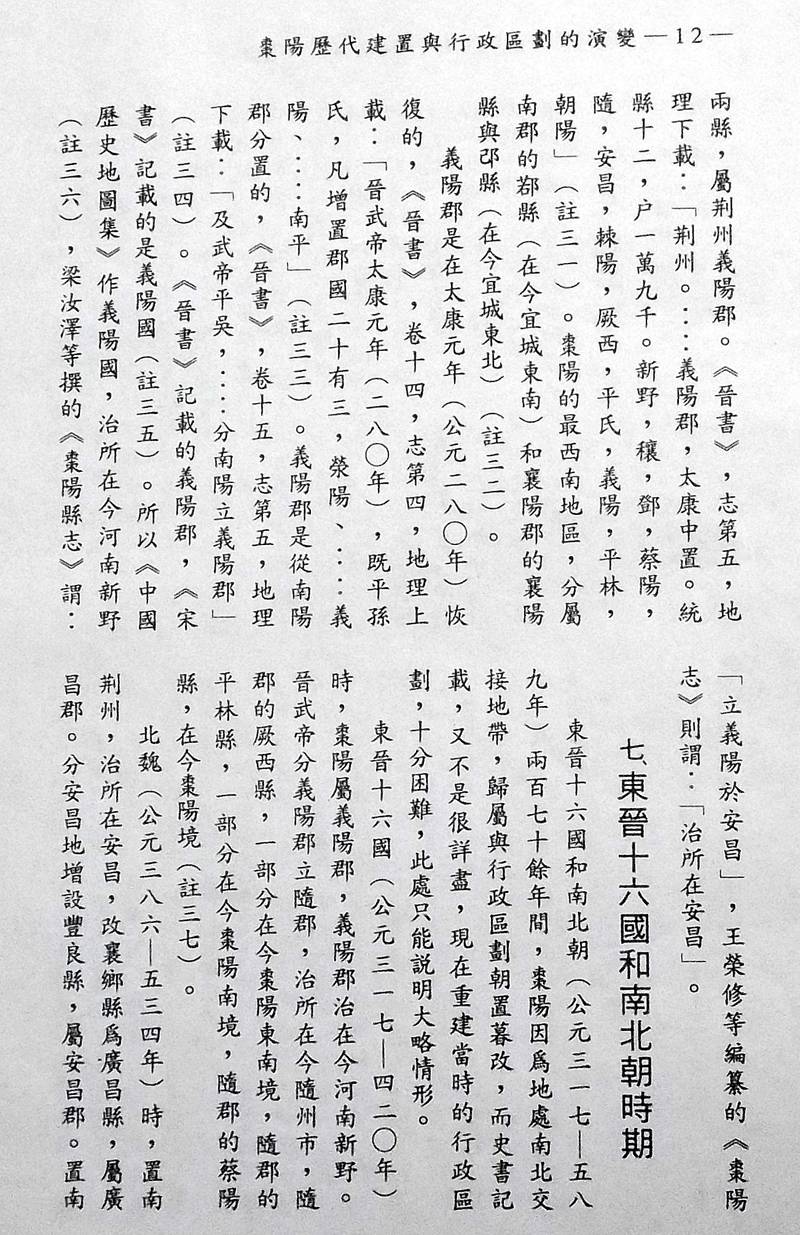 棗陽歷代建置與行政區劃的演變—12—
兩縣，屬荆州義陽郡。《晉書》，志第五，地
理下載：「荆州。：：義陽郡，太康中置。統
縣十二，户一萬九千。新野，穰，鄧，蔡陽，
隨，安昌，棘陽，厥西，平氏，義陽，平林，
朝陽」（註三一）。棗陽的最西南地區，分屬
南郡的鄀縣（在今宜城東南）和襄陽郡的襄陽
縣與邔縣（在今宜城東北）（註三二）。
義陽郡是在太康元年（公元二八〇年）恢
復的，《晉書》，卷十四，志第四，地理上
載：「晉武帝太康元年（二八〇年），既平孫
氏，凡增置郡國二十有三，滎陽、：：義
陽、：：南平」（註三三）。義陽郡是從南陽
郡分置的，《晉書》，卷十五，志第五，地理
下載：「及武帝平吳，：：分南陽立義陽郡」
（註三四）。《晉書》記載的義陽郡，《宋
書》記載的是義陽國（註三五）。所以《中國
歷史地圖集》作義陽國，治所在今河南新野
（註三六），梁汝澤等撰的《棗陽縣志》謂：
「立義陽於安昌」，王榮修等編纂的《棗陽
志》則謂：「治所在安昌」。
七、東晉十六國和南北朝時期
東晉十六國和南北朝（公元三一七—五八
九年）兩百七十餘年間，棗陽因爲地處南北交
接地帶，歸屬與行政區劃朝置暮改，而史書記
載，又不是很詳盡，現在重建當時的行政區
劃，十分困難，此處只能説明大略情形。
東晉十六國（公元三一七—四二〇年）
時，棗陽屬義陽郡，義陽郡治在今河南新野。
晉武帝分義陽郡立隨郡，治所在今隨州市，隨
郡的厥西縣，一部分在今棗陽東南境，隨郡的
平林縣，一部分在今棗陽南境，隨郡的蔡陽
縣，在今棗陽境（註三七）。
北魏（公元三八六—五三四年）時，置南
荆州，治所在安昌，改襄鄉縣爲廣昌縣，屬廣
昌郡。分安昌地增設豐良縣，屬安昌郡。置南